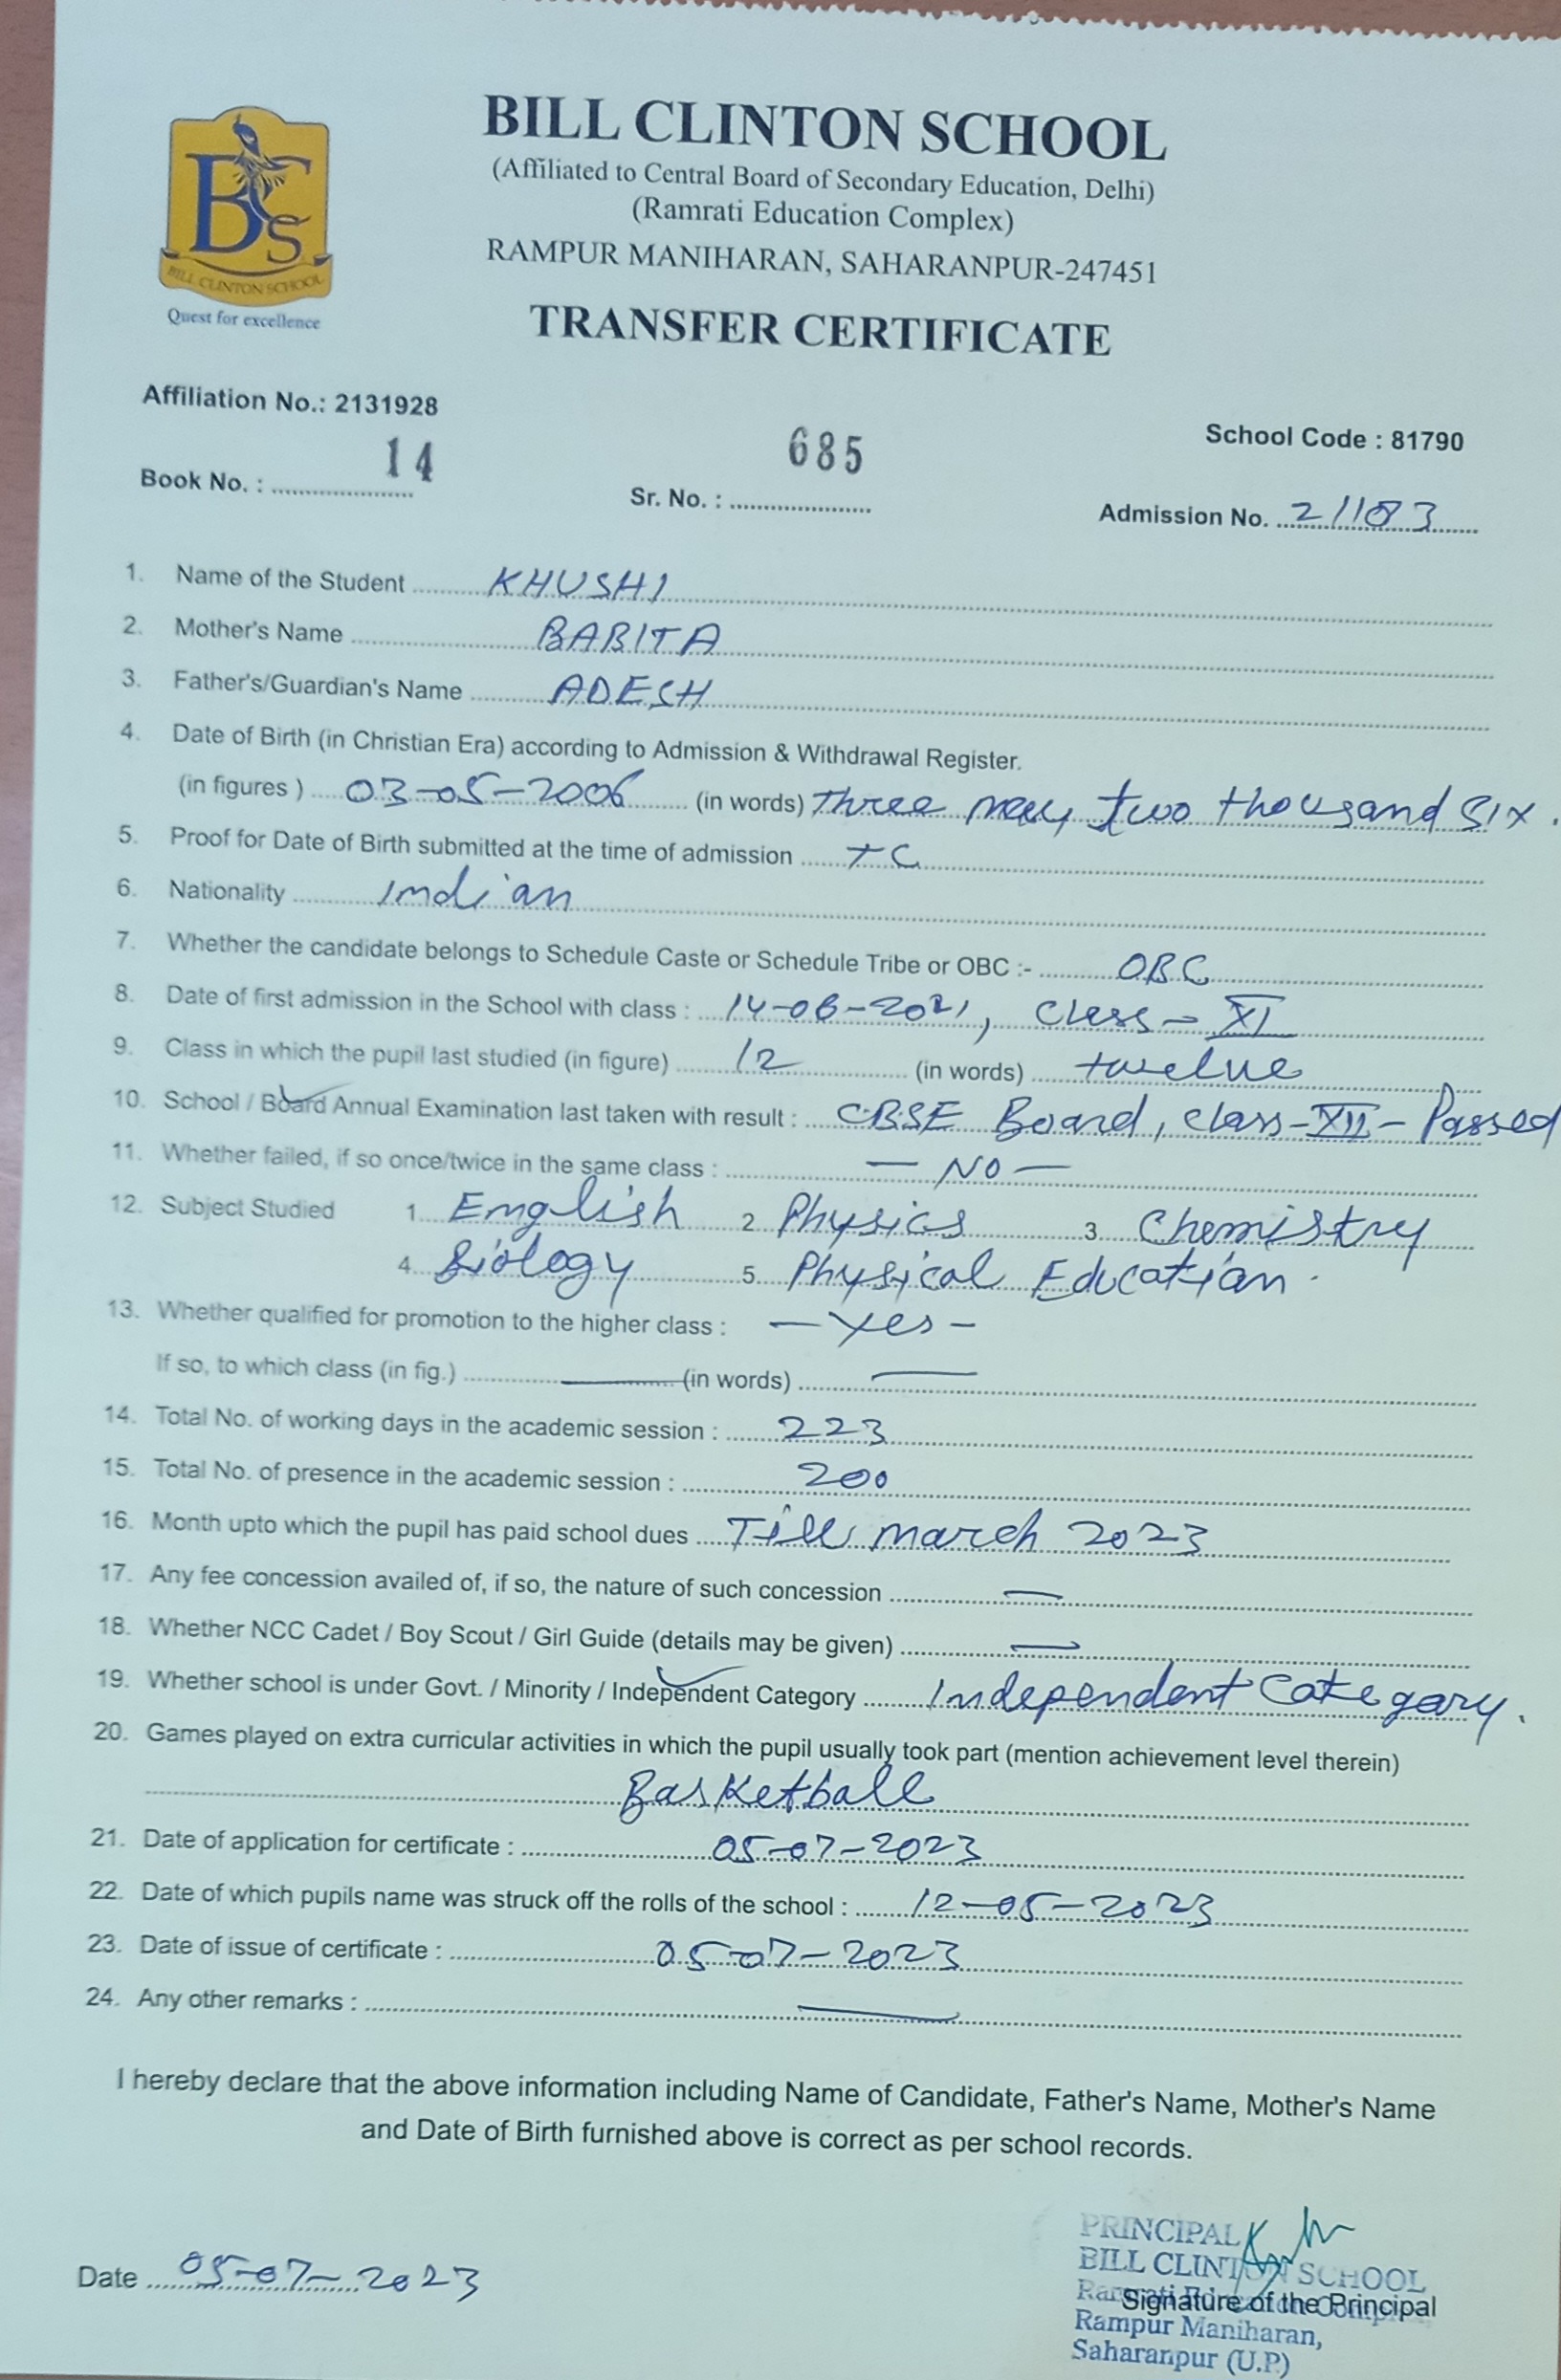 BCS
BILL CLINTON SCHOOL
Quest for excellence
BILL CLINTON SCHOOL
(Affiliated to Central Board of Secondary Education, Delhi)
(Ramrati Education Complex)
RAMPUR MANIHARAN, SAHARANPUR-247451
TRANSFER CERTIFICATE
Affiliation No.: 2131928
School Code : 81790
Book No. : 14 Sr. No. : 685 Admission No. 21183
1. Name of the Student KHUSHI
2. Mother's Name BABITA
3. Father's/Guardian's Name ADESH
4. Date of Birth (in Christian Era) according to Admission & Withdrawal Register.
(in figures ) 03-05-2006 (in words) Three may two thousand six.
5. Proof for Date of Birth submitted at the time of admission TC
6. Nationality Indian
7. Whether the candidate belongs to Schedule Caste or Schedule Tribe or OBC :- OBC
8. Date of first admission in the School with class : 14-06-2021, Class - XI
9. Class in which the pupil last studied (in figure) 12 (in words) twelve
10. School / Board Annual Examination last taken with result : CBSE Board, Class-XII - Passed
11. Whether failed, if so once/twice in the same class : — NO —
12. Subject Studied 1. English 2. Physics 3. Chemistry
4. Biology 5. Physical Education.
13. Whether qualified for promotion to the higher class : — Yes -
If so, to which class (in fig.) — (in words) —
14. Total No. of working days in the academic session : 223
15. Total No. of presence in the academic session : 200
16. Month upto which the pupil has paid school dues Till march 2023
17. Any fee concession availed of, if so, the nature of such concession —
18. Whether NCC Cadet / Boy Scout / Girl Guide (details may be given) —
19. Whether school is under Govt. / Minority / Independent Category Independent Categary.
20. Games played on extra curricular activities in which the pupil usually took part (mention achievement level therein)
Basketball
21. Date of application for certificate : 05-07-2023
22. Date of which pupils name was struck off the rolls of the school : 12-05-2023
23. Date of issue of certificate : 05-07-2023
24. Any other remarks : —
I hereby declare that the above information including Name of Candidate, Father's Name, Mother's Name
and Date of Birth furnished above is correct as per school records.
Date 05-07-2023
PRINCIPAL
BILL CLINTON SCHOOL
Signature of the Principal
Rampur Maniharan,
Saharanpur (U.P.)